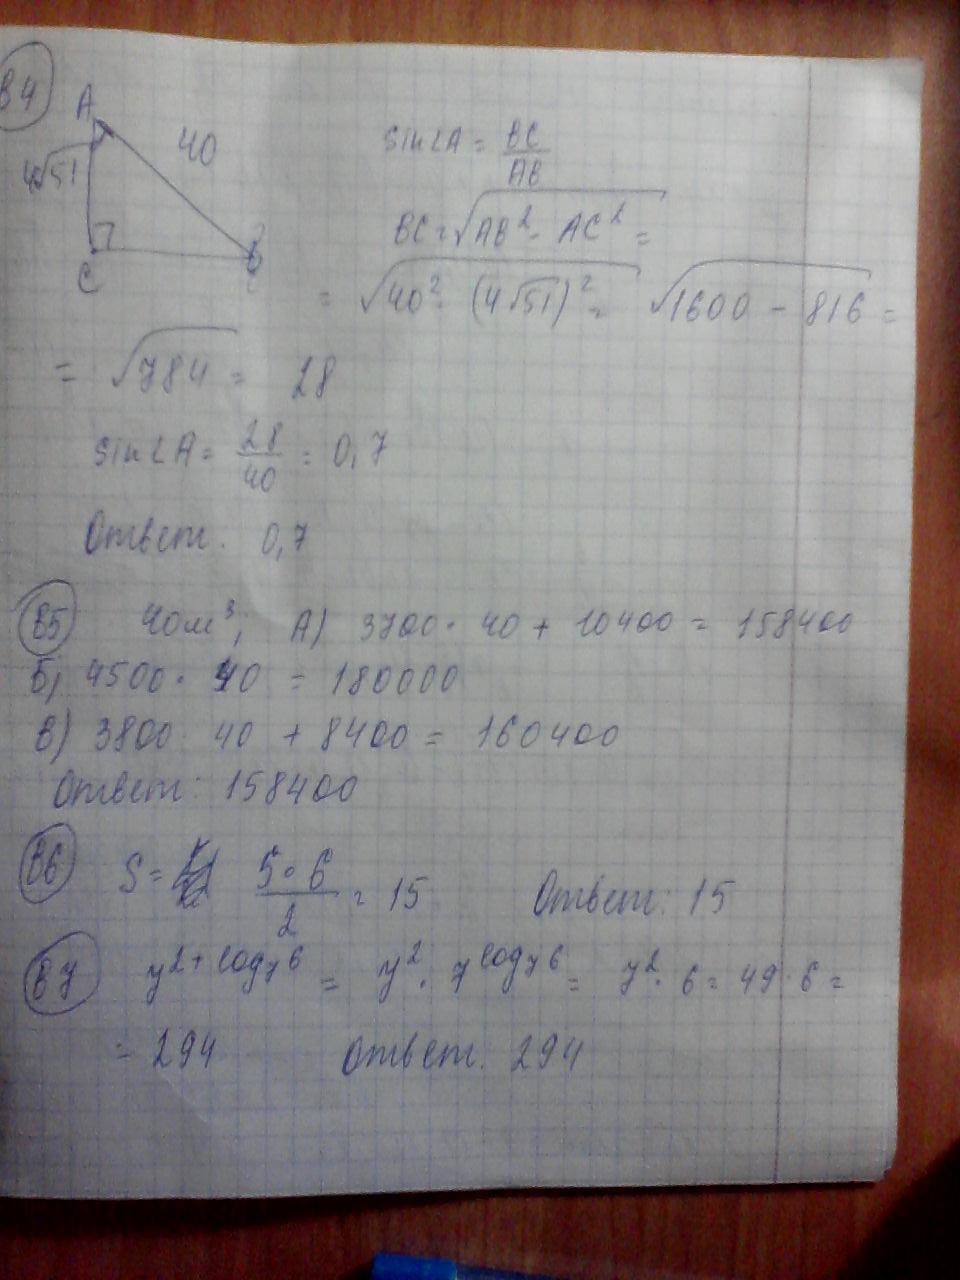 В4
A
40
4√51
C
B
sin∠A = BC/AB
BC = √AB² - AC² =
= √40² - (4√51)² = √1600 - 816 =
= √784 = 28
sin∠A = 28/40 = 0,7
Ответ. 0,7
В5 40м³; А) 3700 · 40 + 10400 = 158400
Б) 4500 · 40 = 180000
В) 3800 40 + 8400 = 160400
Ответ: 158400
В6 S = 5·6/2 = 15 Ответ: 15
В7 7^(2+log₇6) = 7² · 7^(log₇6) = 7² · 6 = 49 · 6 =
= 294 Ответ. 294